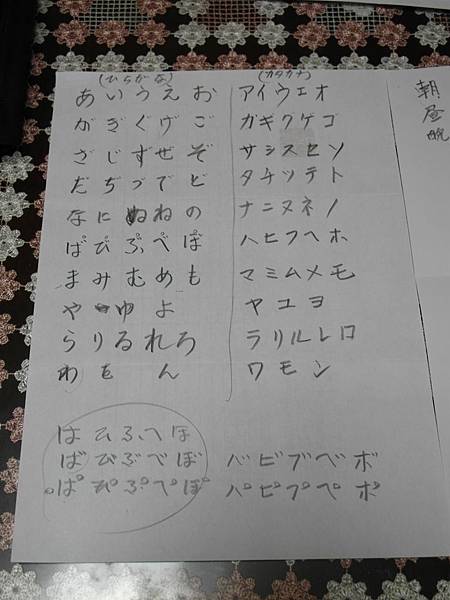 (ひらがな)
あいうえお
がぎぐげご
ざじずぜぞ
だぢづでど
なにぬねの
ぱぴぷぺぽ
まみむめも
やゆよ
らりるれろ
わをん
はひふへほ
ばびぶべぼ
ぱぴぷぺぽ
(カタカナ)
アイウエオ
ガギクゲゴ
サシスセソ
タチツテト
ナニヌネノ
ハヒフヘホ
マミムメモ
ヤユヨ
ラリルレロ
ワモン
バビブベボ
パピプペポ
朝
昼
晩